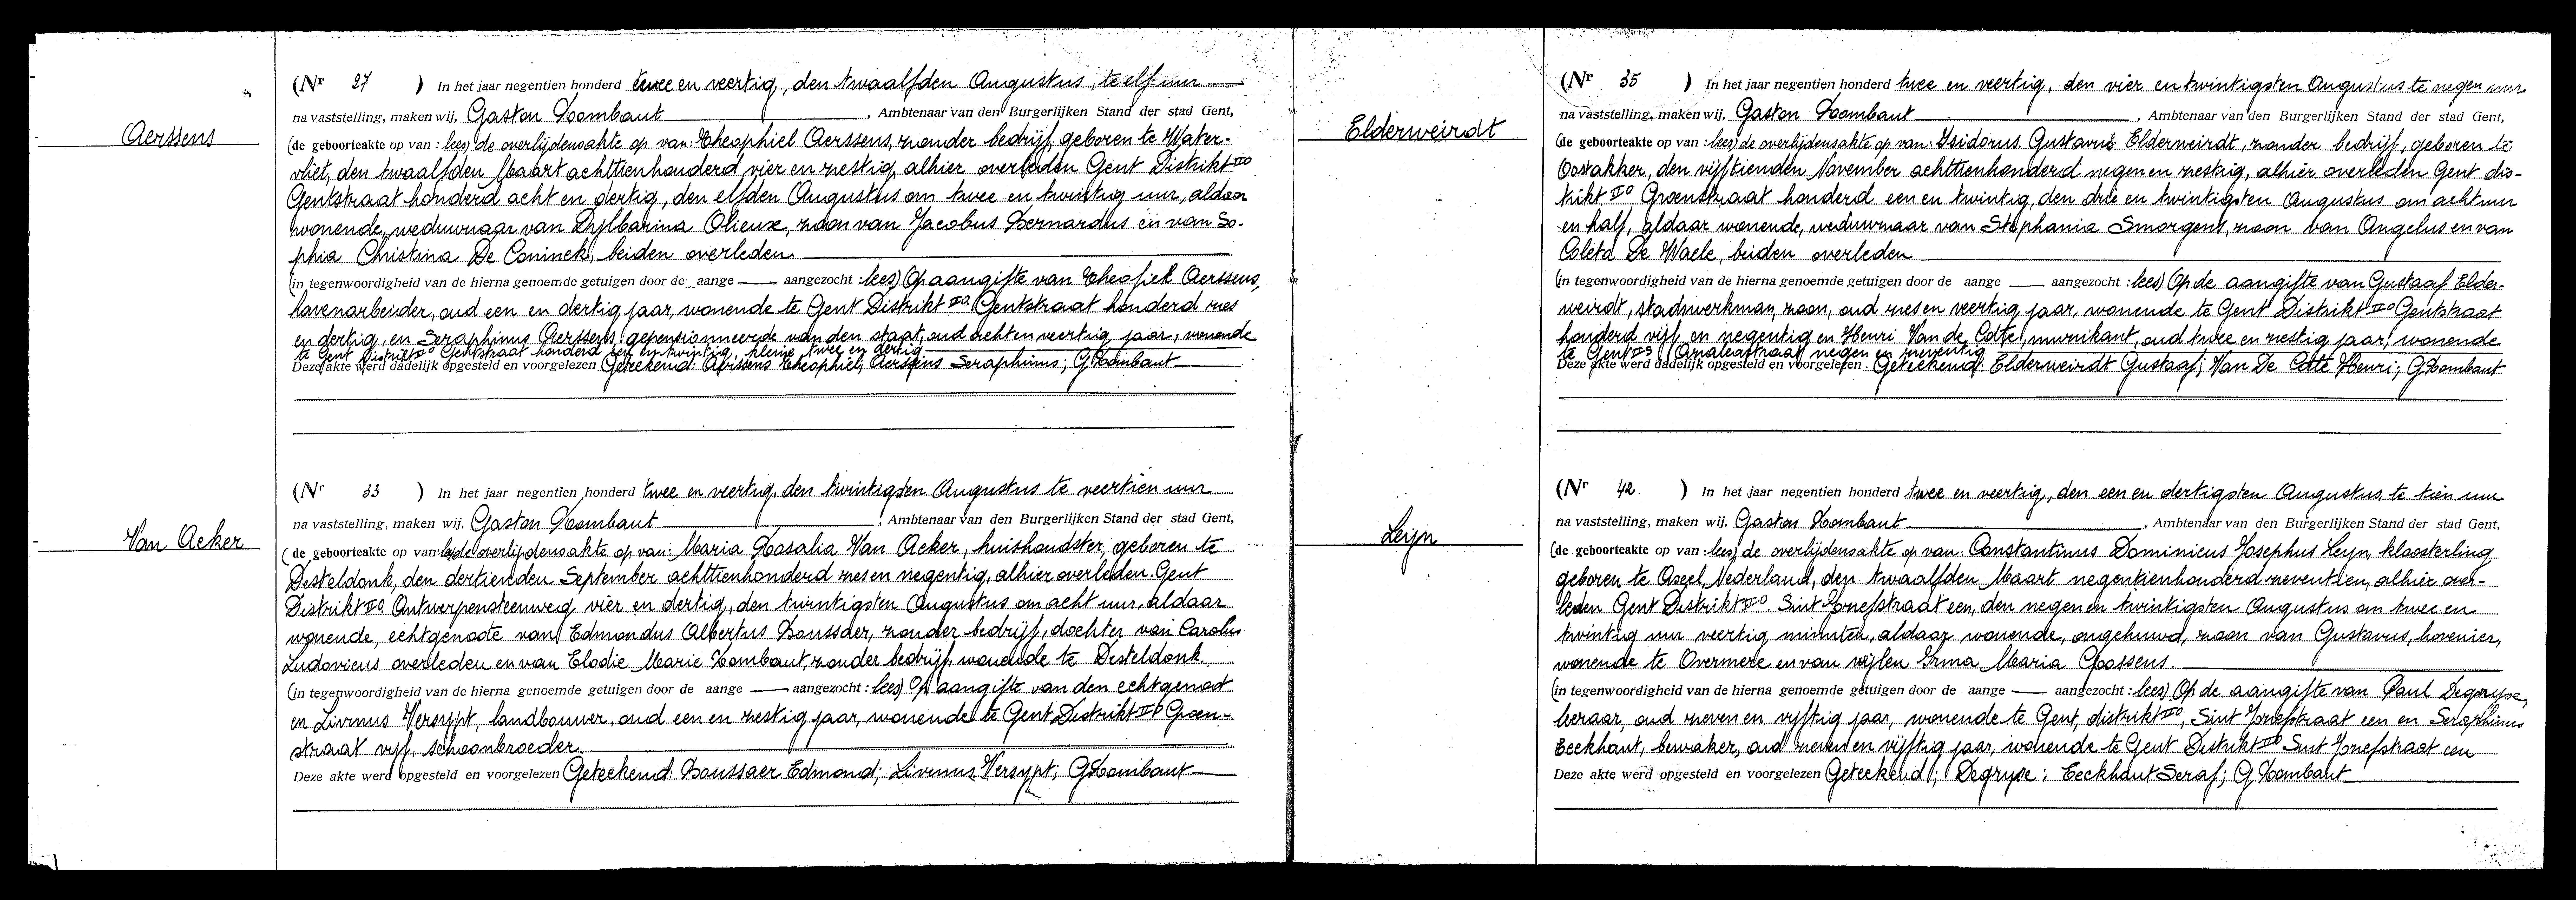 Aerssens
(Nr 27 ) In het jaar negentien honderd twee en veertig, den twaalfden Augustus, te elf uur
na vaststelling, maken wij, Gaston Lombaut, Ambtenaar van den Burgerlijken Stand der stad Gent,
(de geboorteakte op van : lees) de overlijdensakte op van: Theophiel Aerssens, zonder bedrijf, geboren te Water-
vliet, den twaalfden Maart achttienhonderd vier en zestig, alhier overleden Gent Distrikt IIO
Gentstraat honderd acht en dertig, den elfden Augustus om twee en twintig uur, aldaar
wonende, weduwnaar van Olieux, zoon van Jacobus Bernardus en van So-
phia Christina De Coninck, beiden overleden
(in tegenwoordigheid van de hierna genoemde getuigen door de aange aangezocht : lees) Op aangifte van Theofiel Aerssens,
havenarbeider, oud een en dertig jaar, wonende te Gent Distrikt IIO Gentstraat honderd zes
en dertig, en Seraphinus Aerssens, gepensionneerde van den staat, oud acht en veertig jaar, wonende
te Gent Distrikt IIO Gentstraat honderd een en twintig, kleine twee en dertig
Deze akte werd dadelijk opgesteld en voorgelezen Geteekend: Aerssens Theophiel; Aerssens Seraphinus; G Lombaut
Van Acker
(Nr 33 ) In het jaar negentien honderd twee en veertig, den twintigsten Augustus te veertien uur
na vaststelling, maken wij, Gaston Lombaut, Ambtenaar van den Burgerlijken Stand der stad Gent,
(de geboorteakte op van: lees) de overlijdensakte op van: Maria Rosalia Van Acker, huishoudster, geboren te
Desteldonk, den dertienden September achttienhonderd zes en negentig, alhier overleden Gent
Distrikt IIO Antwerpensteenweg vier en dertig, den twintigsten Augustus om acht uur, aldaar
wonende, echtgenoote van Edmondus Albertus Boussaer, zonder bedrijf, dochter van Carolus
Ludovicus overleden en van Elodie Marie Lombaut, zonder bedrijf, wonende te Desteldonk
(in tegenwoordigheid van de hierna genoemde getuigen door de aange aangezocht : lees) Op aangifte van den echtgenoot
en Livinus Versypt, landbouwer, oud een en zestig jaar, wonende te Gent Distrikt IIO Groen-
straat vijf, schoonbroeder.
Deze akte werd opgesteld en voorgelezen Geteekend: Boussaer Edmond; Livinus Versypt; G Lombaut
Elderweirdt
(Nr 35 ) In het jaar negentien honderd twee en veertig, den vier en twintigsten Augustus te negen uur
na vaststelling, maken wij, Gaston Lombaut, Ambtenaar van den Burgerlijken Stand der stad Gent,
(de geboorteakte op van : lees) de overlijdensakte op van: Isidorus Gustavus Elderweirdt, zonder bedrijf, geboren te
Oostakker, den vijftienden November achttienhonderd negen en zestig, alhier overleden Gent dis-
trikt IIO Groenstraat honderd een en twintig, den drie en twintigsten Augustus om acht uur
en half, aldaar wonende, weduwnaar van Stephania Smorgens, zoon van Angelus en van
Coleta De Waele, beiden overleden
(in tegenwoordigheid van de hierna genoemde getuigen door de aange aangezocht : lees) Op de aangifte van Gustaaf Elder-
weirdt, stadswerkman, zoon, oud zes en veertig jaar, wonende te Gent Distrikt IIO Gentstraat
honderd vijf en negentig en Henri Van de Cotte, muzikant, oud twee en zestig jaar, wonende
te Gent Amaleastraat negen en zeventig
Deze akte werd dadelijk opgesteld en voorgelezen Geteekend: Elderweirdt Gustaaf; Van De Cotte Henri; G Lombaut
Leyn
(Nr 42. ) In het jaar negentien honderd twee en veertig, den een en dertigsten Augustus te tien uur
na vaststelling, maken wij, Gaston Lombaut, Ambtenaar van den Burgerlijken Stand der stad Gent,
(de geboorteakte op van : lees) de overlijdensakte op van: Constantinus Dominicus Josephus Leyn, kloosterling
geboren te Nederland, den twaalfden Maart negentienhonderd zeventien, alhier over-
leden Gent Distrikt IIO Sint Jozefstraat een, den negen en twintigsten Augustus om twee en
twintig uur veertig minuten, aldaar wonende, ongehuwd, zoon van Gustavus, hovenier,
wonende te Overmere en van wijlen Irma Maria Goossens.
(in tegenwoordigheid van de hierna genoemde getuigen door de aange aangezocht : lees) Op de aangifte van Paul Degryse,
leraar, oud zeven en vijftig jaar, wonende te Gent, distrikt IIO, Sint Jozefstraat een en Seraphinus
Eeckhaut, bewaker, oud zeven en vijftig jaar, wonende te Gent Distrikt IIO Sint Jozefstraat een
Deze akte werd opgesteld en voorgelezen Geteekend; Degryse; Eeckhaut Seraf; G Lombaut